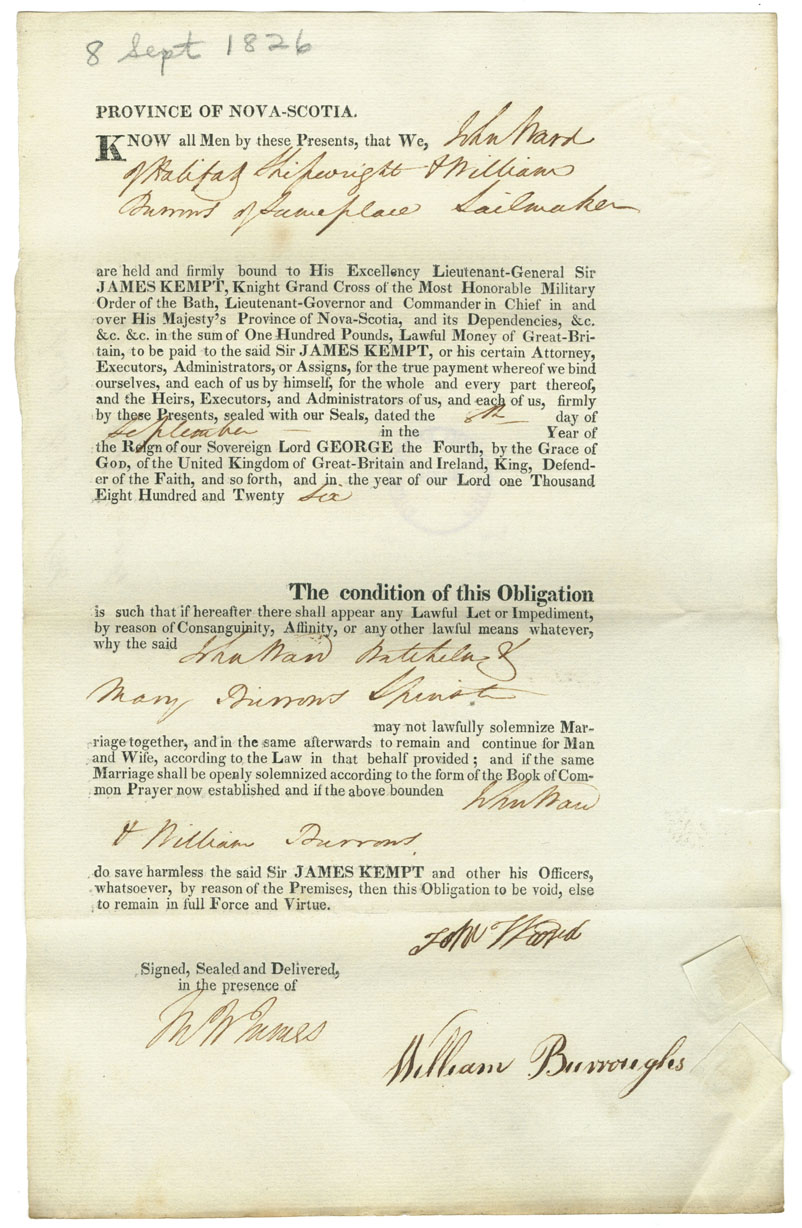 8 Sept 1826
PROVINCE OF NOVA-SCOTIA.
KNOW all Men by these Presents, that We, John Ward
of Halifax Shipwright & William
Burrows of same place Sailmaker
are held and firmly bound to His Excellency Lieutenant-General Sir
JAMES KEMPT, Knight Grand Cross of the Most Honorable Military
Order of the Bath, Lieutenant-Governor and Commander in Chief in and
over His Majesty's Province of Nova-Scotia, and its Dependencies, &c.
&c. &c. in the sum of One Hundred Pounds, Lawful Money of Great-Bri-
tain, to be paid to the said Sir JAMES KEMPT, or his certain Attorney,
Executors, Administrators, or Assigns, for the true payment whereof we bind
ourselves, and each of us by himself, for the whole and every part thereof,
and the Heirs, Executors, and Administrators of us, and each of us, firmly
by these Presents, sealed with our Seals, dated the 8th day of
September in the Year of
the Reign of our Sovereign Lord GEORGE the Fourth, by the Grace of
GOD, of the United Kingdom of Great-Britain and Ireland, King, Defend-
er of the Faith, and so forth, and in the year of our Lord one Thousand
Eight Hundred and Twenty Six
The condition of this Obligation
is such that if hereafter there shall appear any Lawful Let or Impediment,
by reason of Consanguinity, Affinity, or any other lawful means whatever,
why the said John Ward Batchelor &
Mary Burrows Spinster
may not lawfully solemnize Mar-
riage together, and in the same afterwards to remain and continue for Man
and Wife, according to the Law in that behalf provided; and if the same
Marriage shall be openly solemnized according to the form of the Book of Com-
mon Prayer now established and if the above bounden John Ward
& William Burrows
do save harmless the said Sir JAMES KEMPT and other his Officers,
whatsoever, by reason of the Premises, then this Obligation to be void, else
to remain in full Force and Virtue.
John Ward
Signed, Sealed and Delivered,
in the presence of
William Burroughs